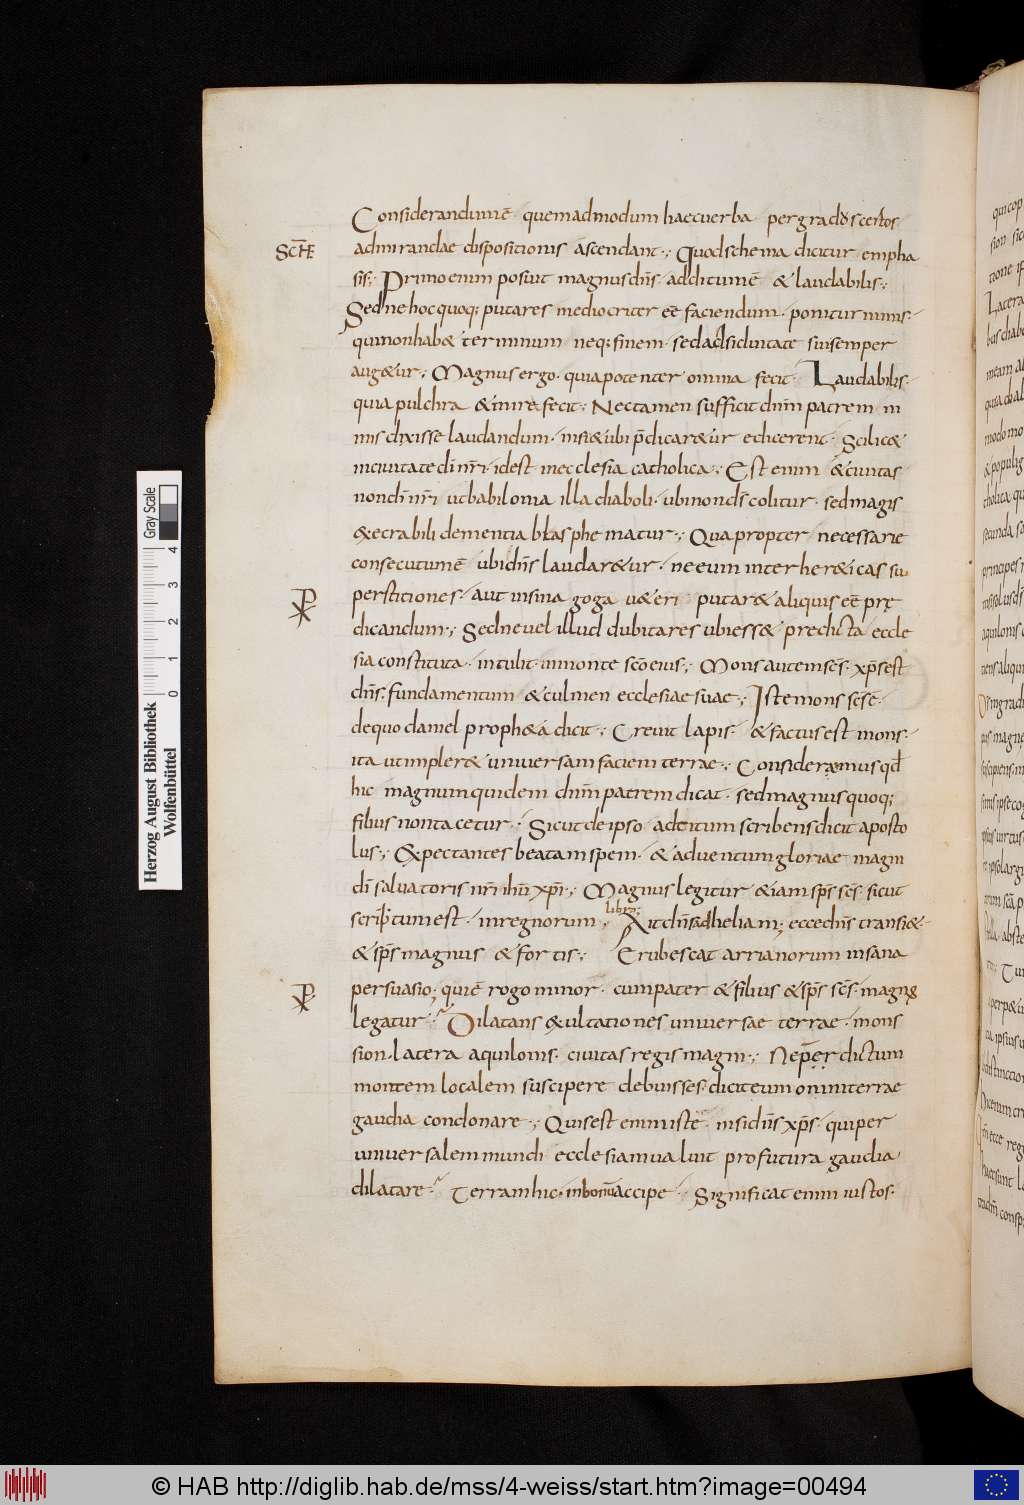 Considerandumē quemadmodum haecuerba pergradus certos
SCHE
admirandae dispositionis ascendant·; Quodschema dicitur empha
sis·; Primoenim posuit magnusdn̄s· additumē & laudabilis·;
Sednehocquoq; putares mediocriter eē faciendum· poniturnimis·
quinonhab& terminum neq; finem· sedadsiduitate suisemper
aug&ur·; Magnusergo· quiapotenter omnia fecit· Laudabilis·
quia pulchra &mire fecit·; Nectamen sufficit dn̄m patrem ni
mis dixisse laudandum· nisi&ubi p̄dicar&ur edicerent· Scilic&
inciuitatedī nr̄i· idest inecclesia catholica·; Est enim &ciuitas
nondī nr̄i utbabilonia illa diaboli· ubinondn̄s colitur· sedmagis
&ecrabili dementia blasphematur·; Quapropter necessarie
consecutumē ubidn̄s laudar&ur· neeum inter her&icas su
perstitiones· aut insina goga u&eri putar& aliquis eē prę
dicandum·; Sedneuel illud dubitares ubiess& predicta eccle
sia constituta· intulit· inmonte scō eius·; Mons autem sēs· xp̄s est
dn̄s· fundamentum & culmen ecclesiae suae·; Iste mons sēs ē·
dequo daniel proph&a dicit·; Creuit lapis· & factus est mons·
ita utimpler& uniuersam faciem terrae·; Consideremus qd̄
hic magnum quidem dn̄m patrem dicat· sed magnus quoq;
filius nontacetur·; Sicut deipso aduitum scribens dicit aposto
lus·; Expectantes beatam spem· & aduentum gloriae magni
dī saluatoris nr̄i ihū xp̄i·; Magnus legitur &iam sp̄s sc̄s· sicut
libro;
scriptum est· inregnorum· Ait dn̄s adheliam; ecce dn̄s transi&·
& sp̄s magnus & fortis·; Erubescat arrianorum insana
persuasio; quiē rogo minor· cumpater & filius & sp̄s sc̄s· magnus
legatur·; Dilatans &ultationes uniuersae terrae· mons
sion· latera aquilonis· ciuitas regis magni·; Neper dictum
montem localem suscipere debuisses· diciteum omni terrae
gaudia condonare·; Quisest enim istē· nisi dn̄s xp̄s· qui per
uniuersalem mundi ecclesiam ualuit profutura gaudia
dilatare· Terram hic· inbonū accipe· Significat enim iustos·
Gray Scale
4 3 2 1 0
Herzog August Bibliothek
Wolfenbüttel
© HAB http://diglib.hab.de/mss/4-weiss/start.htm?image=00494